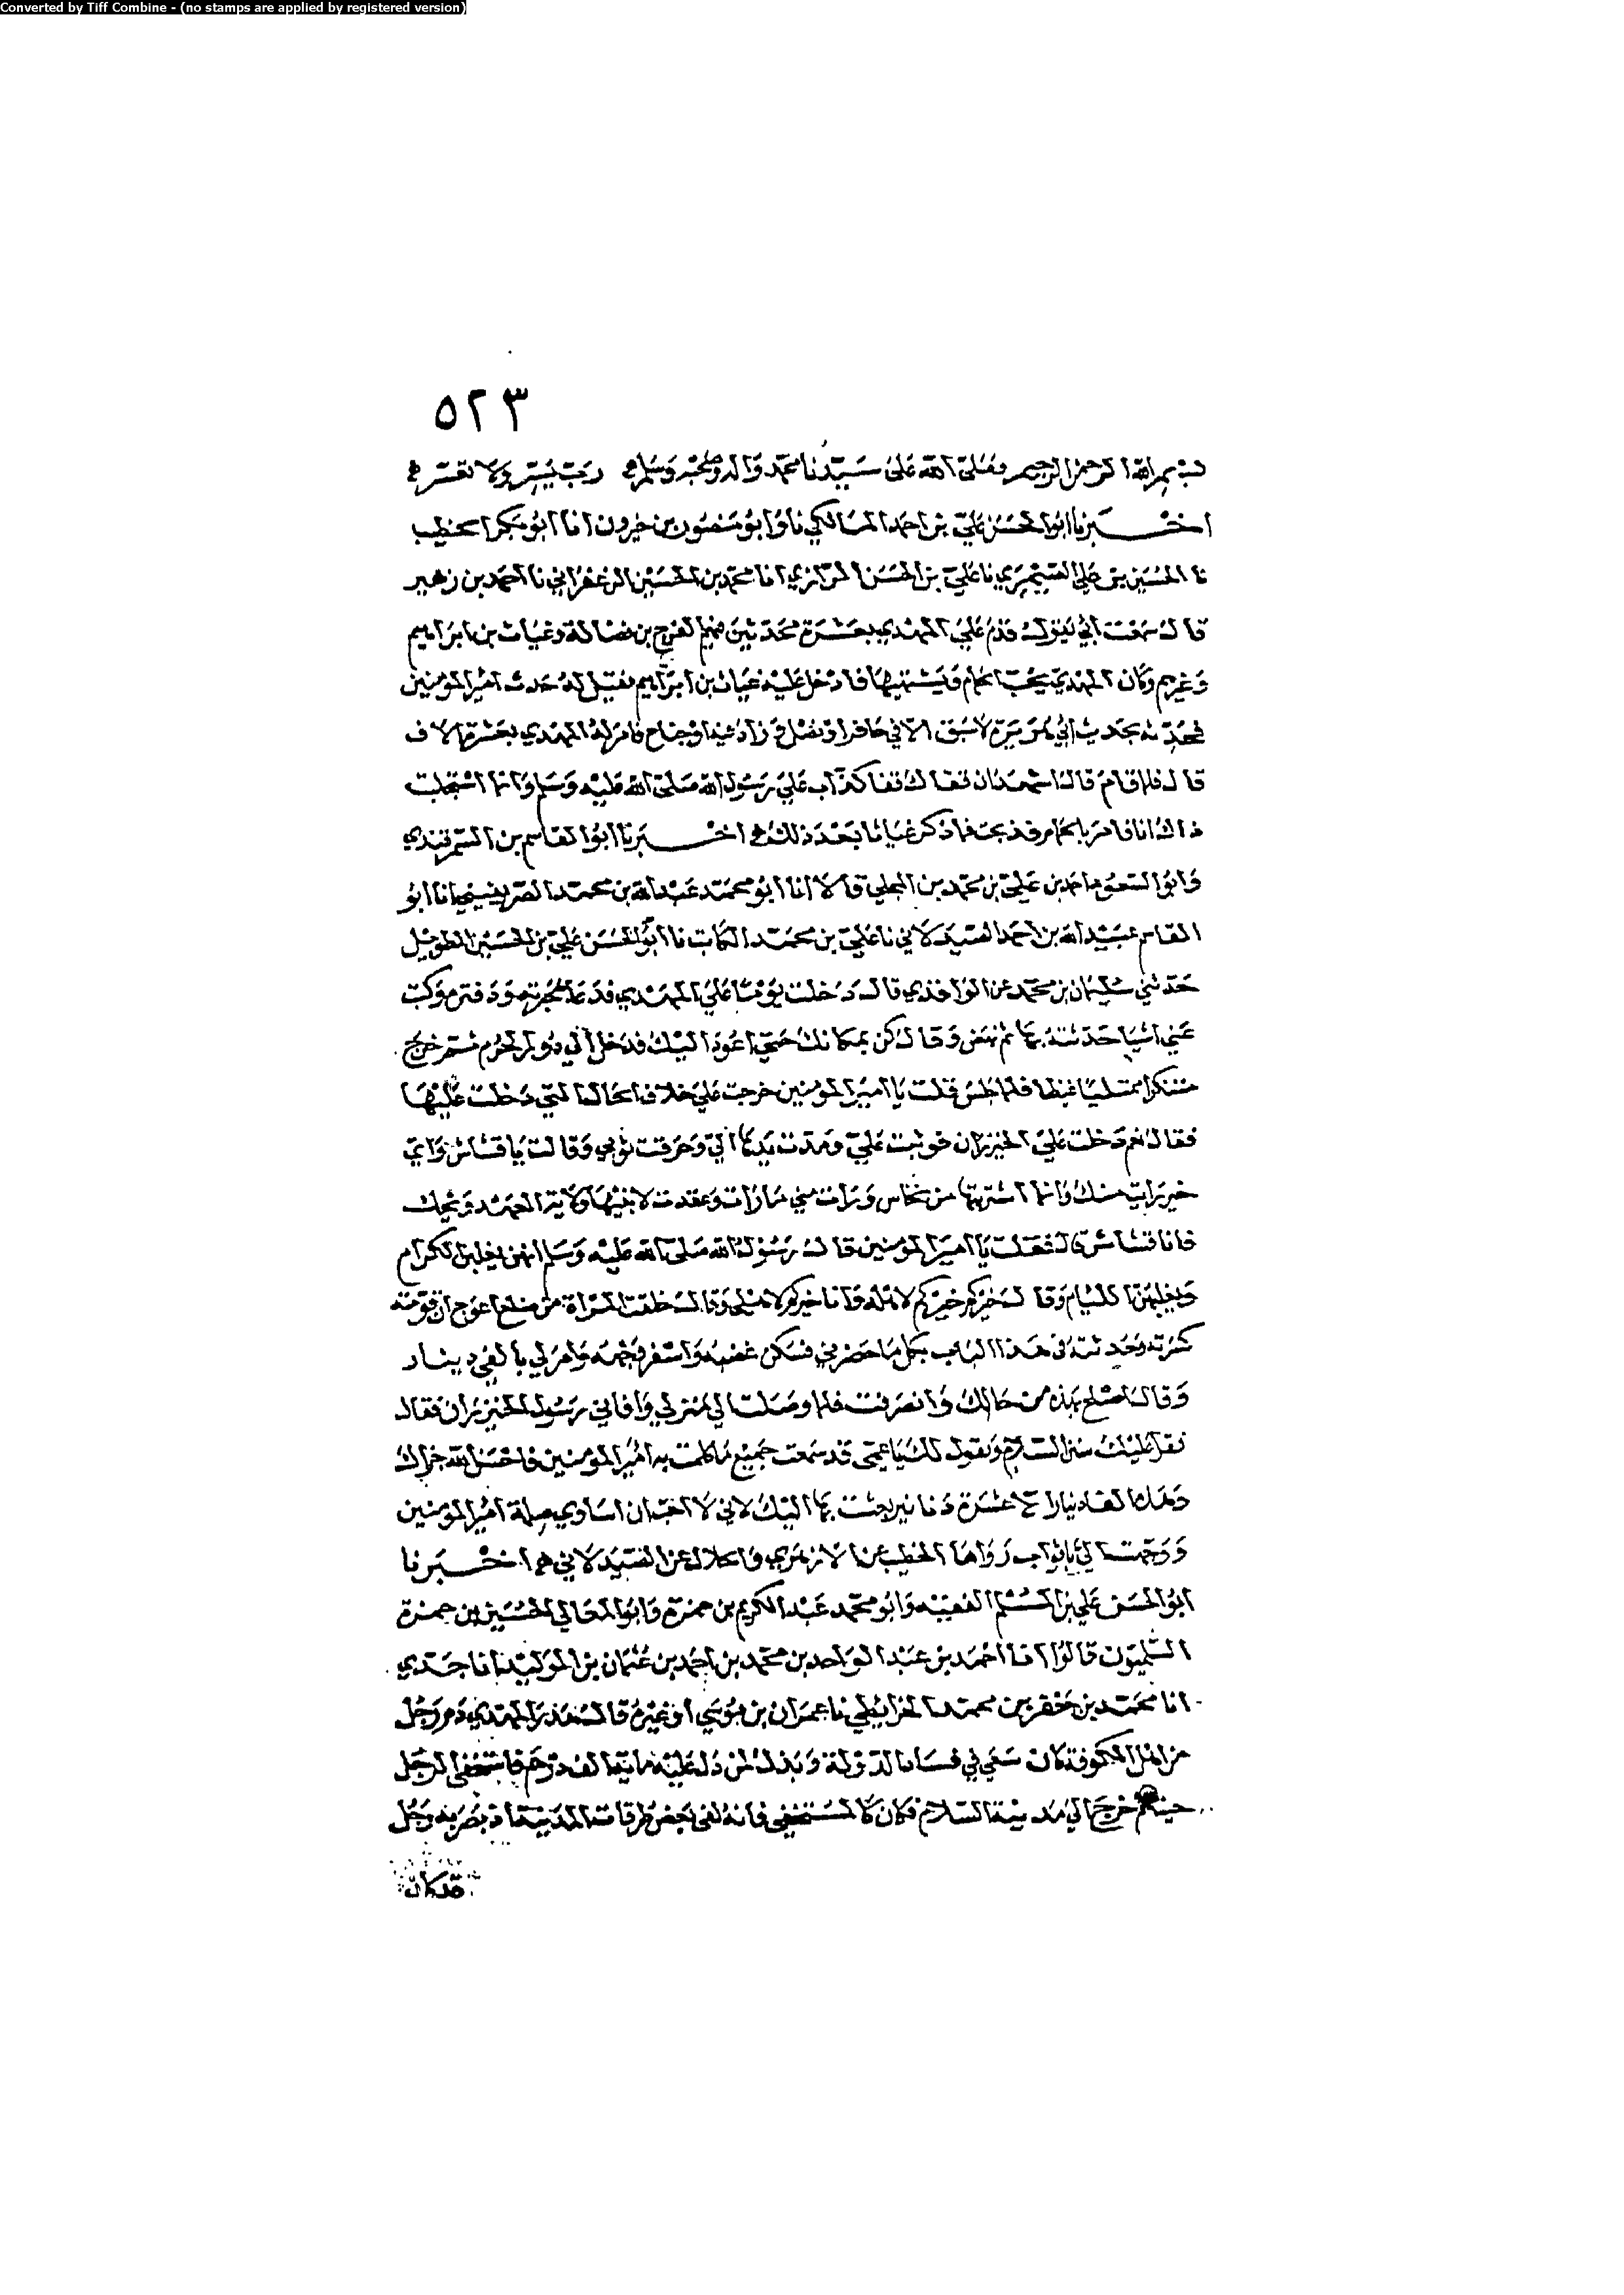 Converted by Tiff Combine - (no stamps are applied by registered version)
٥٢٣
بسم الله الرحمن الرحيم وصلى الله على سيدنا محمد واله وصحبه وسلم رب يسر ولا تعسر
اخبرنا ابو الحسن علي بن احمد المالكي نا وابو منصور بن خيرون انا ابو بكر الخطيب
نا الحسين بن علي الصيمري نا علي بن الحسن الرازي انا محمد بن الحسين الزعفراني نا احمد بن زهير
قال سمعت ابي يقول قدم علي المهدي بعشرة محدثين منهم الفرج بن فضالة وغياث بن ابراهيم
وغيرهم وكان المهدي يحب الحمام ويشتهيها فادخل عليه غياث بن ابراهيم فقيل له حدث امير المومنين
فحدثه بحديث ابي هريرة لا سبق الا في حافر او نصل وزاد فيه او جناح فامر له المهدي بعشرة الاف
قال فلما قام قال اشهد ان قفاك قفا كذاب علي رسول الله صلى الله عليه وسلم وانما استجلبت
ذاك انا فامر بالحمام فذبحت فما ذكر غياثا بعد ذلك اخبرنا ابو القاسم بن السمرقندي
وابو السعود احمد بن علي بن محمد بن المجلي قالا انا ابو محمد عبد الله بن محمد الصريفيني انا ابو
القاسم عبيد الله بن احمد الصيدلاني نا علي بن محمد الكاتب نا ابو الحسن علي بن الحسين الطويل
حدثني سليمان بن محمد عن الواقدي قال دخلت يوما علي المهدي فدعا بمحبرته ودفتره وكتب
عني اشيا حدثته بها ثم نهض وقال كن بمكانك حتى اعود اليك فدخل الي دور الحرم ثم خرج
متنكرا ممتليا غيظا فلما جلس قلت يا امير المومنين خرجت علي خلاف الحال التي دخلت عليها
فقال نعم دخلت علي الخيزران فوثبت علي ومدت يدها الي وخرقت ثوبي وقالت يا قشاش واي
خير رايت منك وانما اشتريتها من نخاس ورات مني ما رات وعقدت لابنيها ولاية العهد ويحك
فانا قشاش قال فقلت يا امير المومنين قال رسول الله صلى الله عليه وسلم انهن يغلبن الكرام
ويغلبهن اللئام وقال خيركم خيركم لاهله وانا خيركم لاهلي وقال خلقت المراة من ضلع اعوج ان قومته
كسرته وحدثته في هذا الباب بكل ما حضرني فسكن غضبه واسفر وجهه وامر لي بالفي دينار
وقال اصلح بهذه من حالك وانصرفت فلما وصلت الي منزلي وافاني رسول الخيزران فقال
تقرا عليك ستي السلام وتقول لك يا عمي قد سمعت جميع ما كلمت به امير المومنين فاحسن الله جزاك
وهذه الفا دينار الا عشرة دنانير بعثت بها اليك لاني لا احب ان اساوي صلة امير المومنين
ووجهت الي باثواب رواها الخطيب عن الازهري والخلال عن الصيدلاني اخبرنا
ابو الحسن علي بن المسلم الفقيه وابو محمد عبد الكريم بن حمزة وابو المعالي الحسين بن حمزة
السلميون قالوا انا احمد بن عبد الواحد بن محمد بن احمد بن عثمان بن الوليد انا جدي
انا محمد بن جعفر بن محمد الخرائطي نا عمران بن موسي او غيره قال نذر المهدي دم رجل
من اهل الكوفة كان سعي في فساد الدولة وبذل لمن دل عليه ماية الف درهم فاستخفى الرجل
حينا ثم خرج الي مدينة السلام فكان كالمستخفي فانه لفي بعض طرقات المدينة اذ بصر به رجل
قد كان